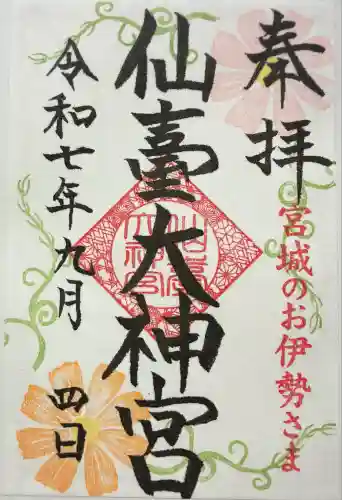 奉拝
宮城のお伊勢さま
仙臺大神宮
令和七年九月
四日